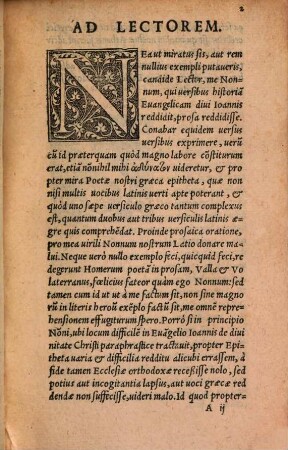 2
AD LECTOREM.
NEaut miratus sis, aut rem
nullius exempli putaueris,
candide Lector, me Non-
num, qui uersibus historiã
Euangelicam diui Ioannis
reddidit, prosa reddidisse.
Conabar equidem uersus
uersibus exprimere, verũ
cũ id præterquam quòd magno labore cõstiturum
erat, etiã nõnihil mihi ἀδύνατον uideretur, & pro
pter mira Poetæ nostri græca epitheta, quæ non
nisi multis uocibus latinis uerti apte poterant, &
quòd uno sæpe uersiculo græco tantum complexus
est, quantum duobus aut tribus uersiculis latinis æ-
gre quis comprehẽdat. Proinde prosaica oratione,
pro mea uirili Nonnum nostrum Latio donare ma-
lui. Neque uerò nullo exemplo feci, quicquid, re
degerunt Homerum poetã in prosam, Valla & Vo
laterranus, fœlicius fateor quàm ego Nonnum: sed
tamen cum id ut ab à me factum sit, non sine magno
rũ in literis heroũ exẽplo factũ sit, me omnẽ repre-
hensionem effugiturum spero. Porrò si in principio
Nõni, ubi locum difficilẽ in Euãgelio Ioannis de diui
nitate Christi paraphrastice tractauit, propter Epi-
theta uaria & difficilia redditu alicubi errassem, à
fide tamen Ecclesiæ orthodoxæ recessisse nolo, sed
sed potius aut incogitantia lapsus, aut uoci græcæ red
dendæ non suffecisse, uideri malo. Id quod propter-
A ij